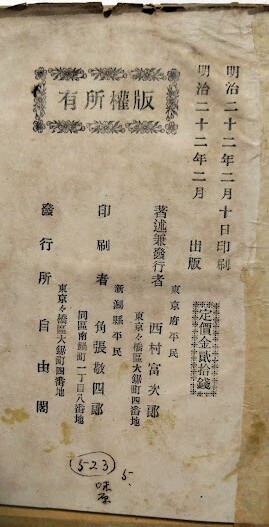 明治二十二年二月十日印刷
明治二十二年二月　出版
定價金貳拾錢
版權所有
東京府平民
著述兼發行者　西村富次郎
東京々橋區大鋸町四番地
新潟縣平民
印刷者　角張敬四郎
同區南鍋町一丁目八番地
東京々橋區大鋸町四番地
發行所　自由閣
523
5.